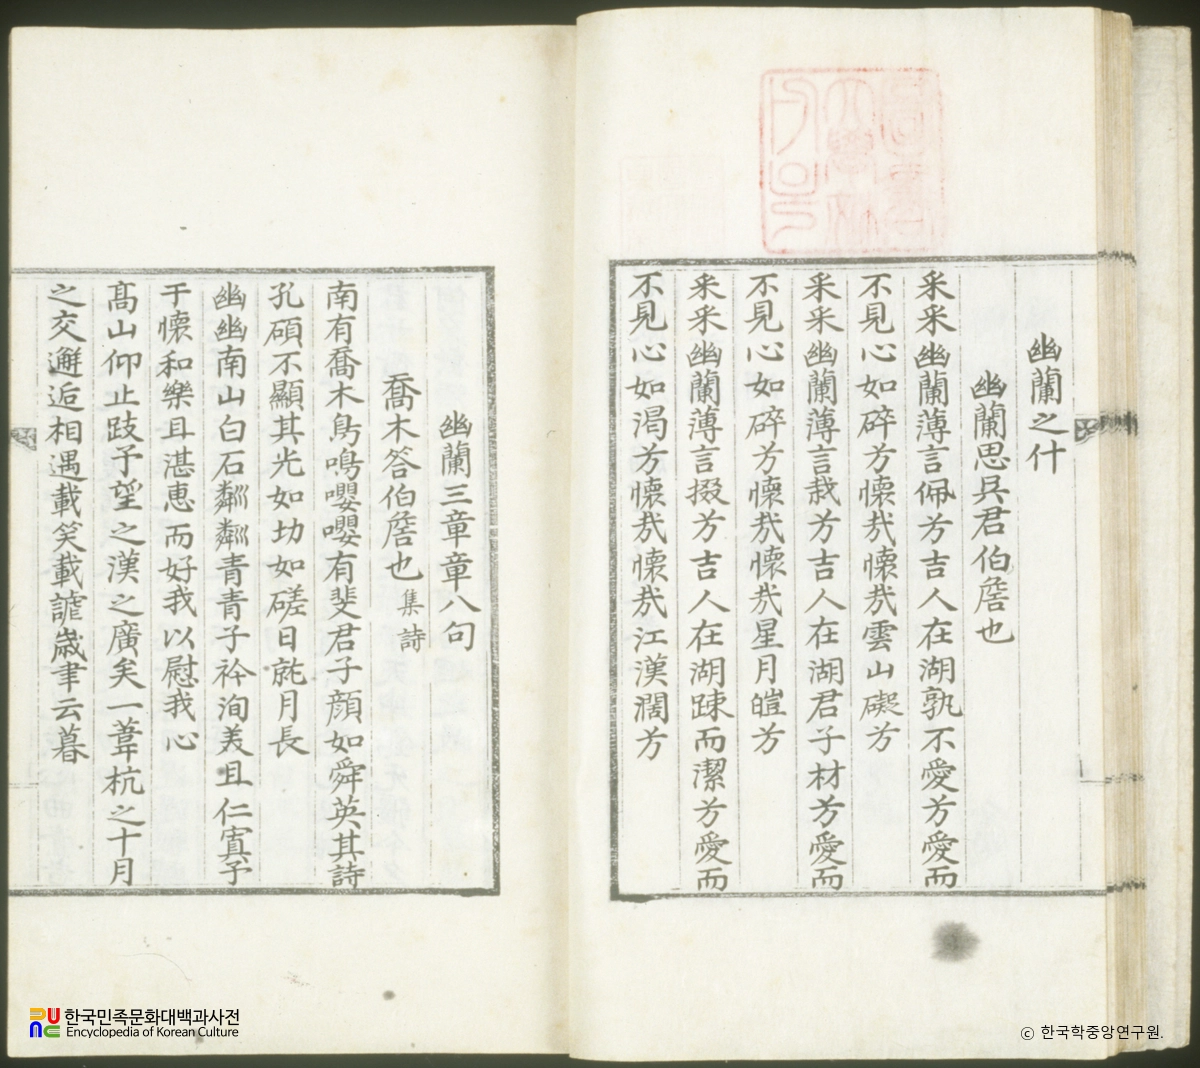 幽蘭之什
幽蘭思呉君伯詹也
采采幽蘭薄言佩兮吉人在湖孰不愛兮愛而
不見心如碎兮懷哉懷哉雲山礙兮
采采幽蘭薄言栽兮吉人在湖君子材兮愛而
不見心如碎兮懷哉懷哉星月皚兮
采采幽蘭薄言掇兮吉人在湖踈而潔兮愛而
不見心如渴兮懷哉懷哉江漢濶兮
幽蘭三章章八句
喬木答伯詹也 集詩
南有喬木鳥鳴嚶嚶有斐君子顔如舜英其詩
孔碩不顯其光如切如磋日就月長
幽幽南山白石粼粼青青子衿洵美且仁寘予
于懷和樂且湛惠而好我以慰我心
髙山仰止跂予望之漢之廣矣一葦杭之十月
之交邂逅相遇載笑載謔歳聿云暮
한국민족문화대백과사전
Encyclopedia of Korean Culture
ⓒ 한국학중앙연구원.